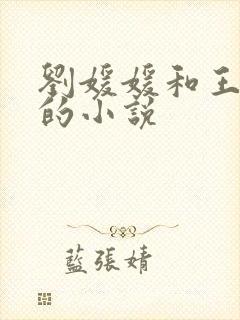 劉媛媛和王
的小說
藍張婧